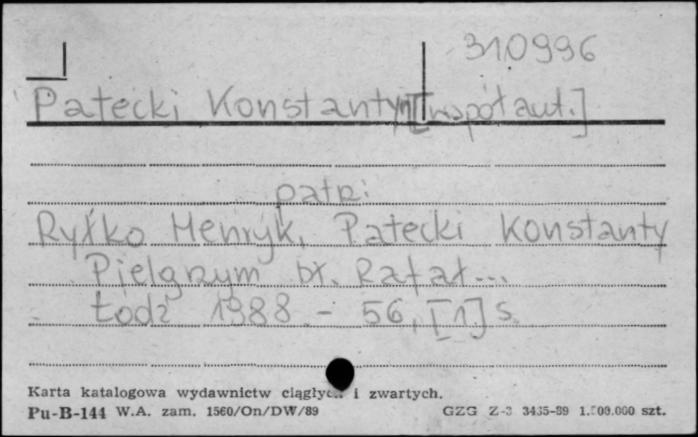 310996
Patecki Konstantyn [współaut.]
patrz:
Ryłko Henryk, Patecki Konstanty
Pielgrzym bł. Rafał...
Łodź 1988 - 56, [1] s.
Karta katalogowa wydawnictw ciągłych i zwartych.
Pu-B-144 W.A. zam. 1560/On/DW/89 GZG Z-3 3435-89 1.500.000 szt.